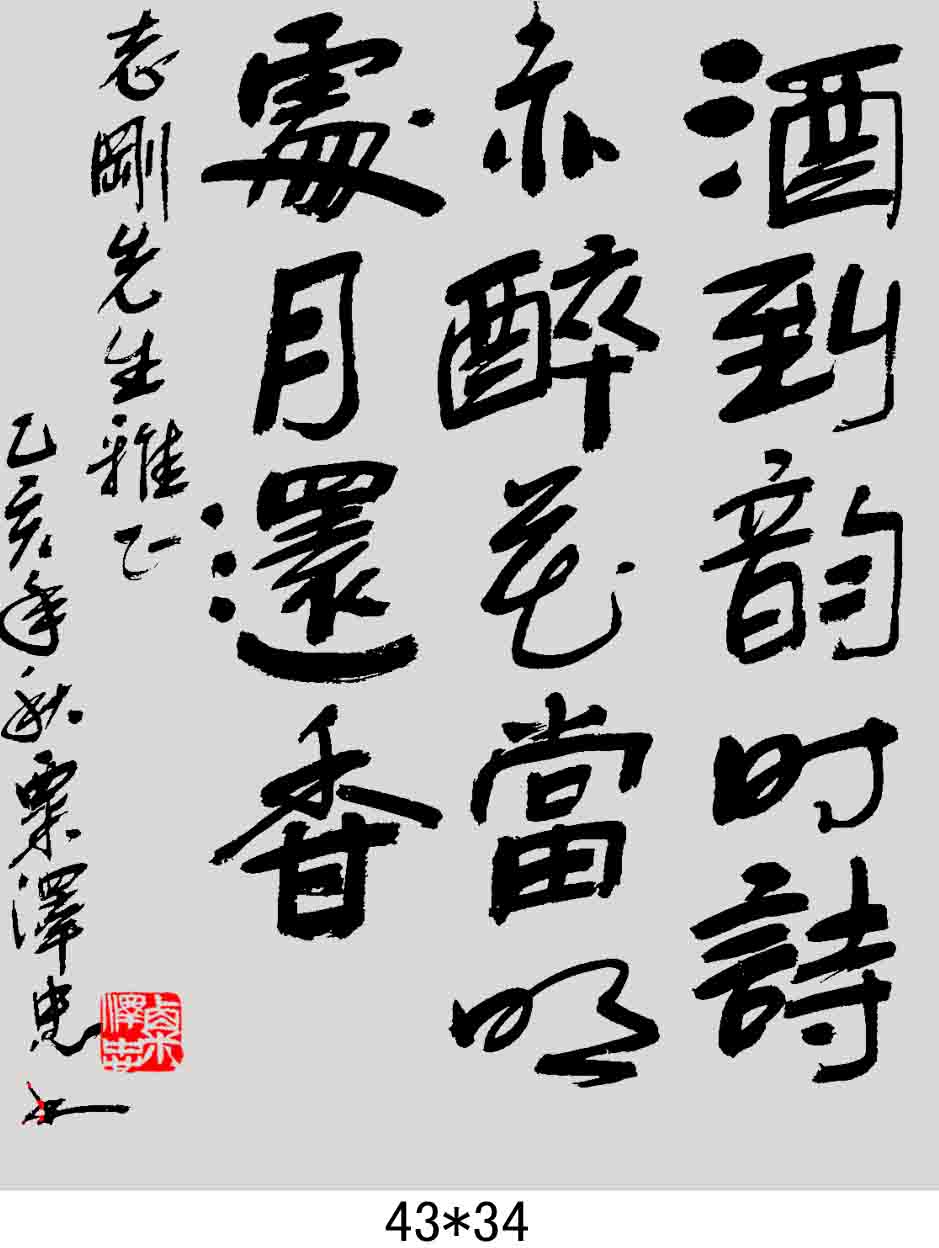 酒到韵时詩
赤醉花當明
處月還香
志剛先生雅正
乙亥年秋栗澤忠
栗澤忠
43*34